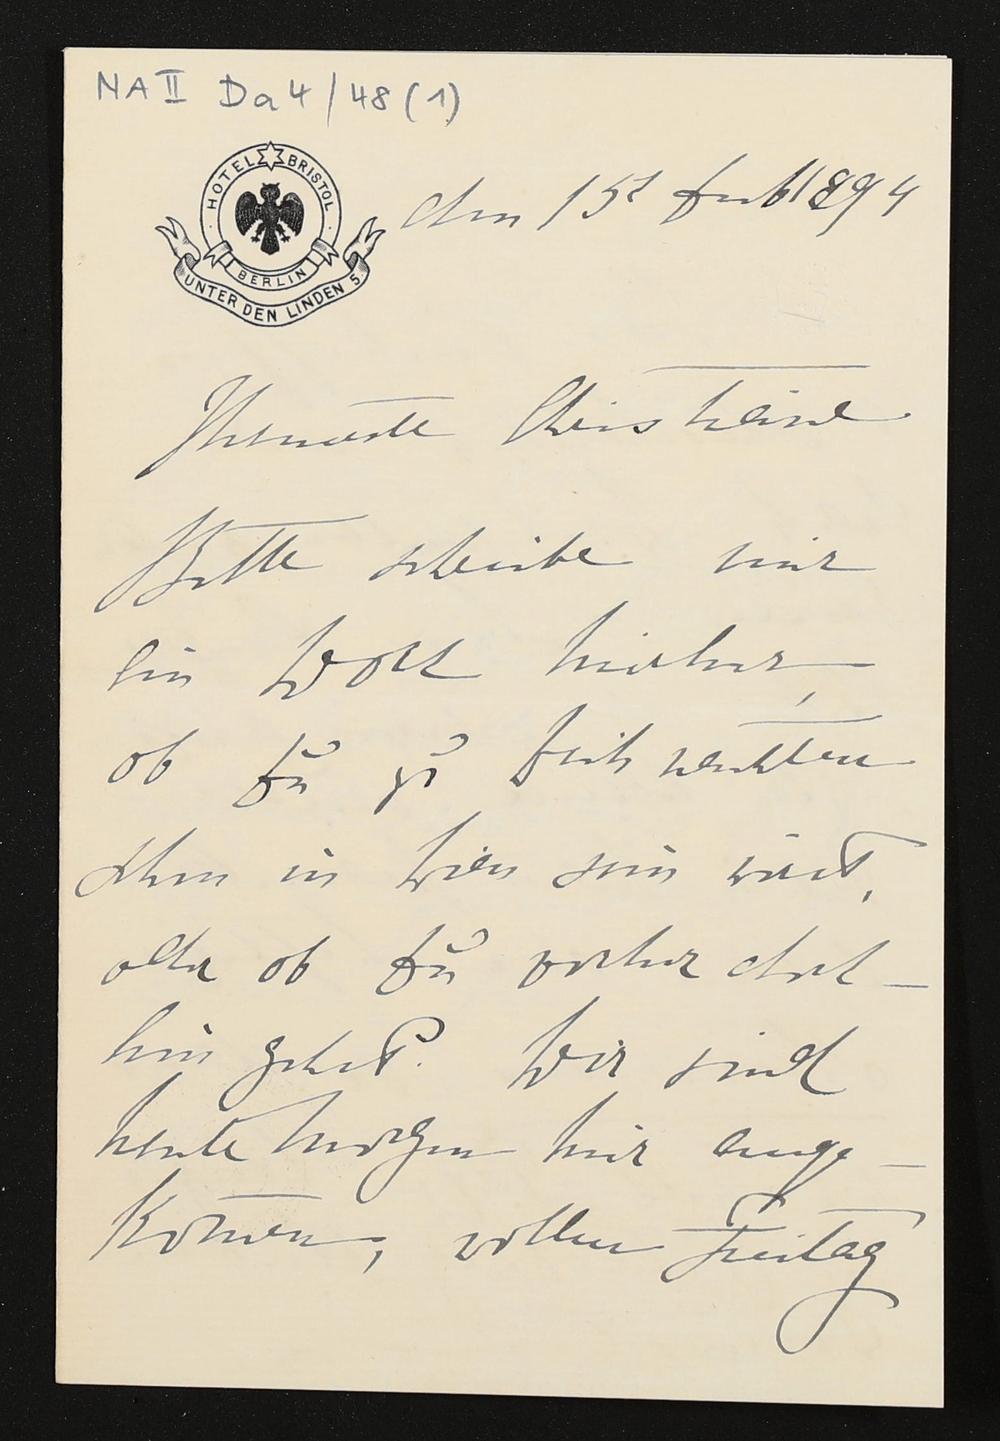 NA II Da 4/48 (1)
HOTEL BRISTOL
BERLIN
UNTER DEN LINDEN 5.
den 15t Feb 1894
Christiane
Bitte schreibe mir
ein Wort hierher,
ob Du zu
schon in Wien sein wirst,
oder ob Du vorher dort-
hin gehst. Wir sind
heute Morgen hier ange-
kom̄en, wollen Freitag